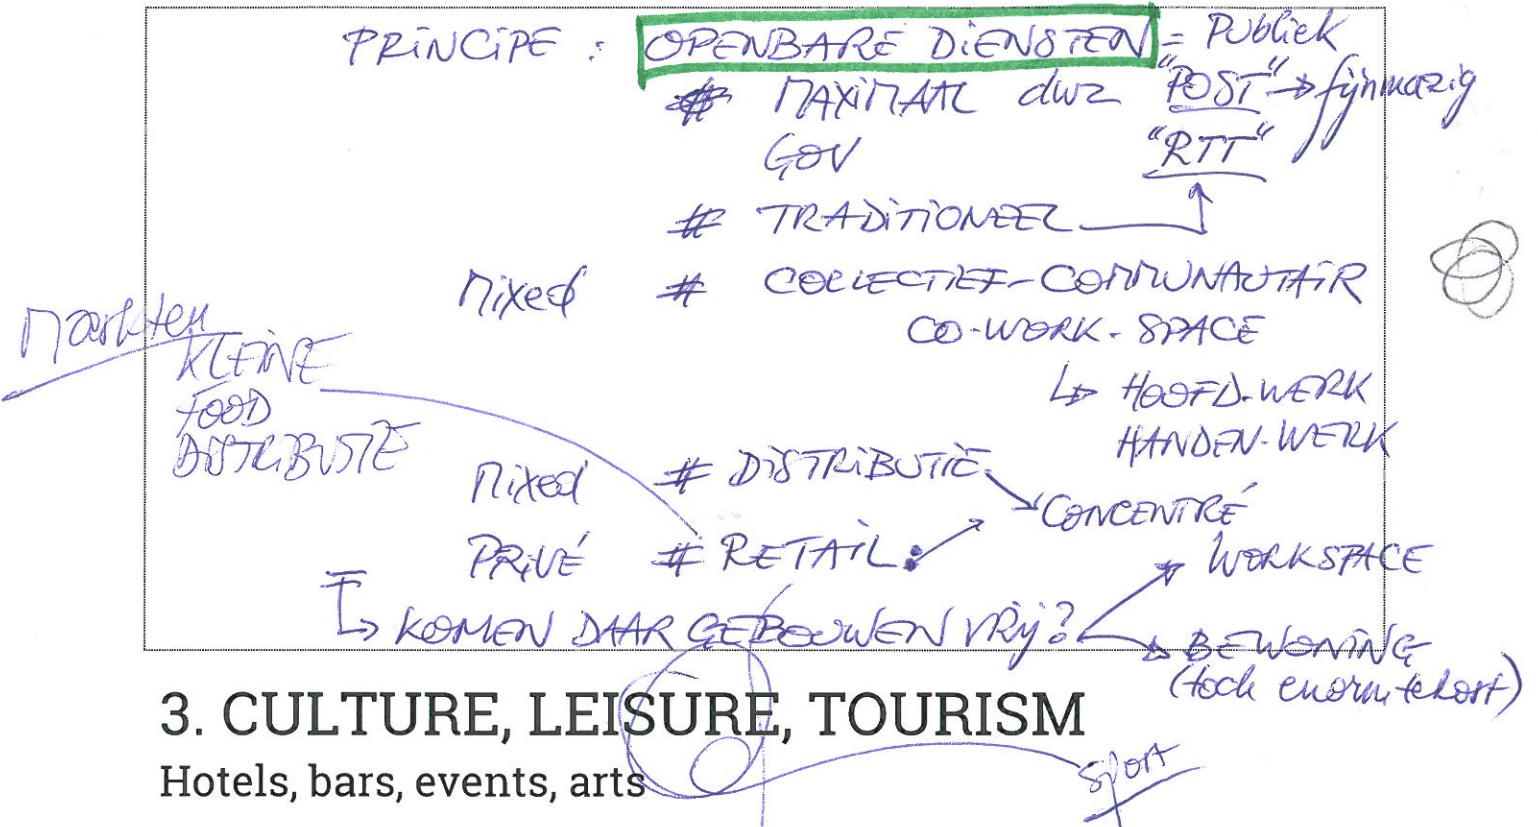 PRINCIPE : OPENBARE DIENSTEN = PUBLIEK
# MAXIMAAL dwz "POST" → fijnmazig
GOV "RTT"
# TRADITIONEEL
Mixed # COLLECTIEF-COMMUNAUTAIR
CO-WORK-SPACE
↳ HOOFD-WERK
HANDEN-WERK
Markten
KLEINE
FOOD
DISTRIBUTIE
Mixed # DISTRIBUTIE → CONCENTRÉ
PRIVÉ # RETAIL:
↳ KOMEN DAAR GEBOUWEN VRIJ?
WORKSPACE
BEWONING
(toch enorm tekort)
3. CULTURE, LEISURE, TOURISM
Hotels, bars, events, arts
Sport